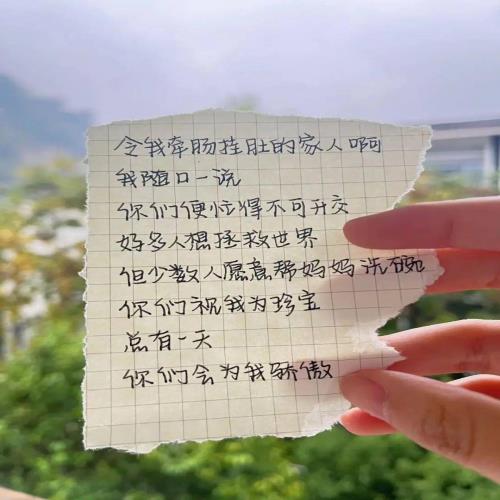 令我牵肠挂肚的家人啊
我随口一说
你们便忙得不可开交
好多人想拯救世界
但少数人愿意帮妈妈洗碗
你们视我为珍宝
总有一天
你们会为我骄傲